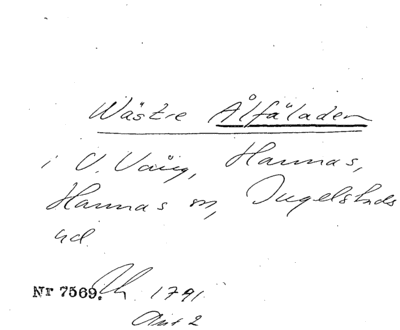 Wästre Ålfäladen
i V. Väng, Hannas,
Hannas sn, Ingelstads
hd.
Nr 7569. Lh 1791
Akt 2